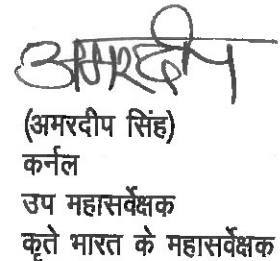 अमरदीप
(अमरदीप सिंह)
कर्नल
उप महासर्वेक्षक
कृते भारत के महासर्वेक्षक